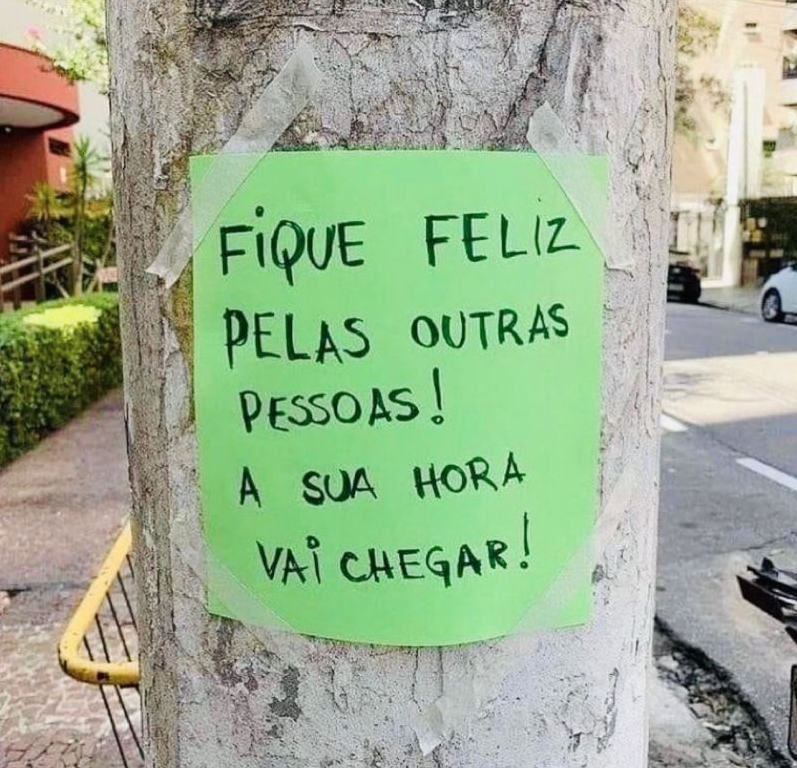 FIQUE FELIZ
PELAS OUTRAS
PESSOAS!
A SUA HORA
VAI CHEGAR!